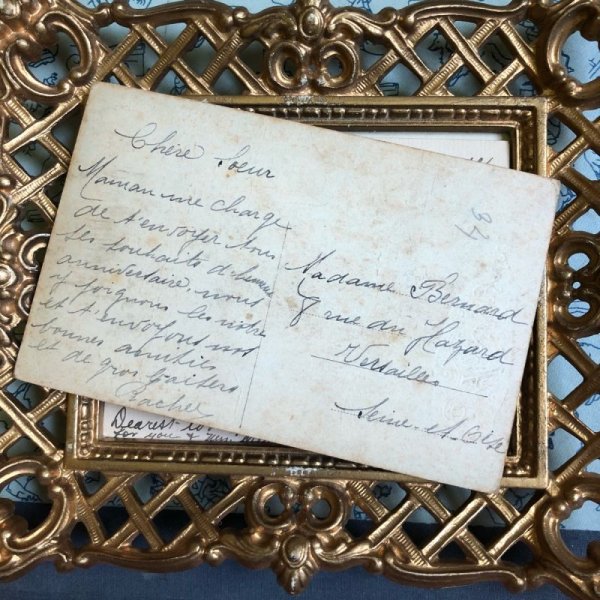 Chère Soeur
Maman me charge
de t'envoyer tous
ses souhaits d'heureux
anniversaire, nous
y joignons les nôtres
et t'envoyons nos
bonnes amitiés
et de gros baisers
Rachel
Madame Bernard
8 rue du Hazard
Versailles
Seine-et-Oise
Dearest
for you &